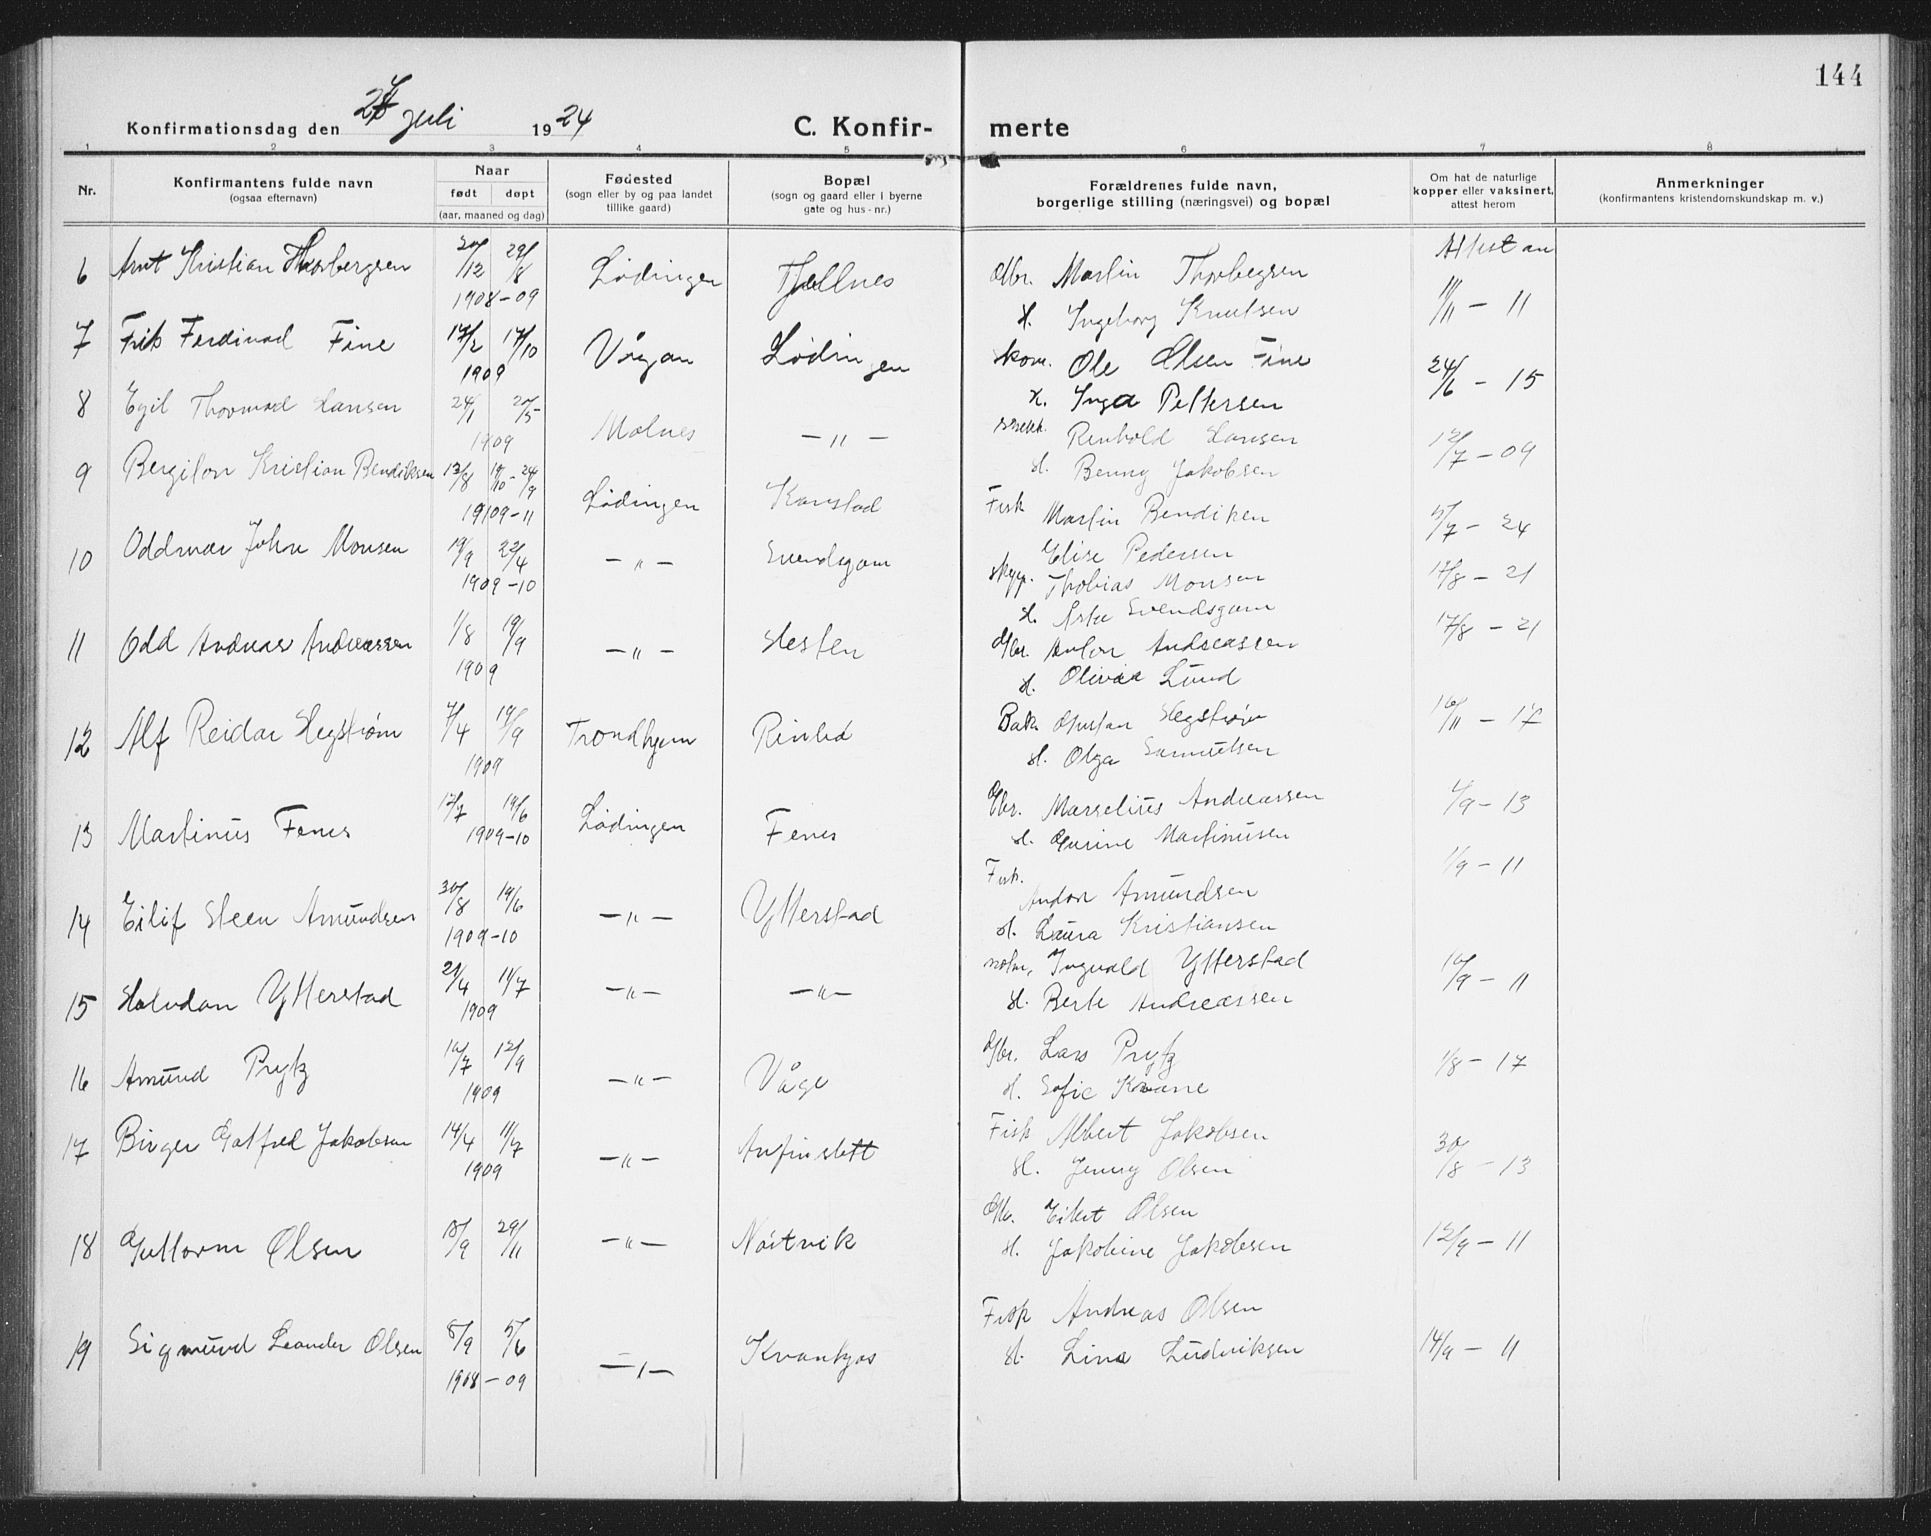 144
Konfirmationsdag den 27 juli 1924
C. Konfir- merte
1 2 3 4 5 6 7 8
Nr.
Konfirmantens fulde navn
(ogsaa efternavn)
Naar
født døpt
(aar, maaned og dag)
Fødested
(sogn eller by og paa landet
tillike gaard)
Bopæl
(sogn og gaard eller i byerne
gate og hus-nr.)
Forældrenes fulde navn,
borgerlige stilling (næringsvei) og bopæl
Om hat de naturlige
kopper eller vaksinert,
attest herom
Anmerkninger
(konfirmantens kristendomskundskap m. v.)
6 Arnt Kristian Thorbergsen 20/12 29/8 1908-09 Lødingen Tjellnes
Gbr. Martin Thorbegsen Attest an
H. Ingeborg Knutsen 11/11 - 11
7 Frik Ferdinad Fine 17/2 17/10 1909 Vågan Lødingen
skom. Ole Olsen Fine 24/6 - 15
H. Inga Pettersen
8 Egil Thormod Hansen 24/1 20/5 1909 Molnes -"-
Reinhold Hansen 12/7 - 09
H. Benny Jakobsen
9 Bergiton Kristian Bendiksen 13/8 19/10 - 24/9 1909-11 Lødingen Kanstad
Fisk Martin Bendiken 5/7 - 24
Elise Pedersen
10 Oddmar John Monsen 19/9 22/4 1909-10 -"- Svendsgam
skypp. Thobias Monsen 17/8 - 21
H. Asta Svendsgam
11 Odd Andreas Andreassen 1/8 19/9 1909 -"- Hesten
Gbr. Anton Andreassen 17/8 - 21
H. Olivia Lund
12 Alf Reidar Hegstrøm 7/4 19/9 1909 Trondhjem Rinbø
Bak. Gustav Hegstrøm 16/11 - 17
H. Olga Samuelsen
13 Martinus Fenes 12/7 19/6 1909-10 Lødingen Fenes
Gbr. Marselius Andreassen 4/9 - 13
H. Gurine Martinusen
14 Eilif Steen Amundsen 30/8 19/6 1909-10 -"- Ytterstad
Fisk. Andor Amundsen 1/9 - 11
H. Laura Kristiansen
15 Halvdan Ytterstad 21/4 11/7 1909 -"- -"-
Ingvald Ytterstad 10/9 - 11
H. Berte Andreassen
16 Amund Prytz 10/7 12/9 1909 -"- Våge
Gbr. Lars Prytz 1/8 - 17
H. Sofie Kvane
17 Birger Gotfred Jakobsen 14/4 11/7 1909 -"- Anfinslett
Fisk Albert Jakobsen 30/8 - 13
H. Jenny Olsen
18 Guttorm Olsen 18/9 29/11 -"- Nöstvik
Gbr. Eilert Olsen
H. Jakobine Jakobsen 12/9 - 11
19 Sigmund Leander Olsen 8/9 5/6 1908-09 -"- Kvankjos
Fisk Andreas Olsen
H. Lina Ludviksen 14/9 - 11